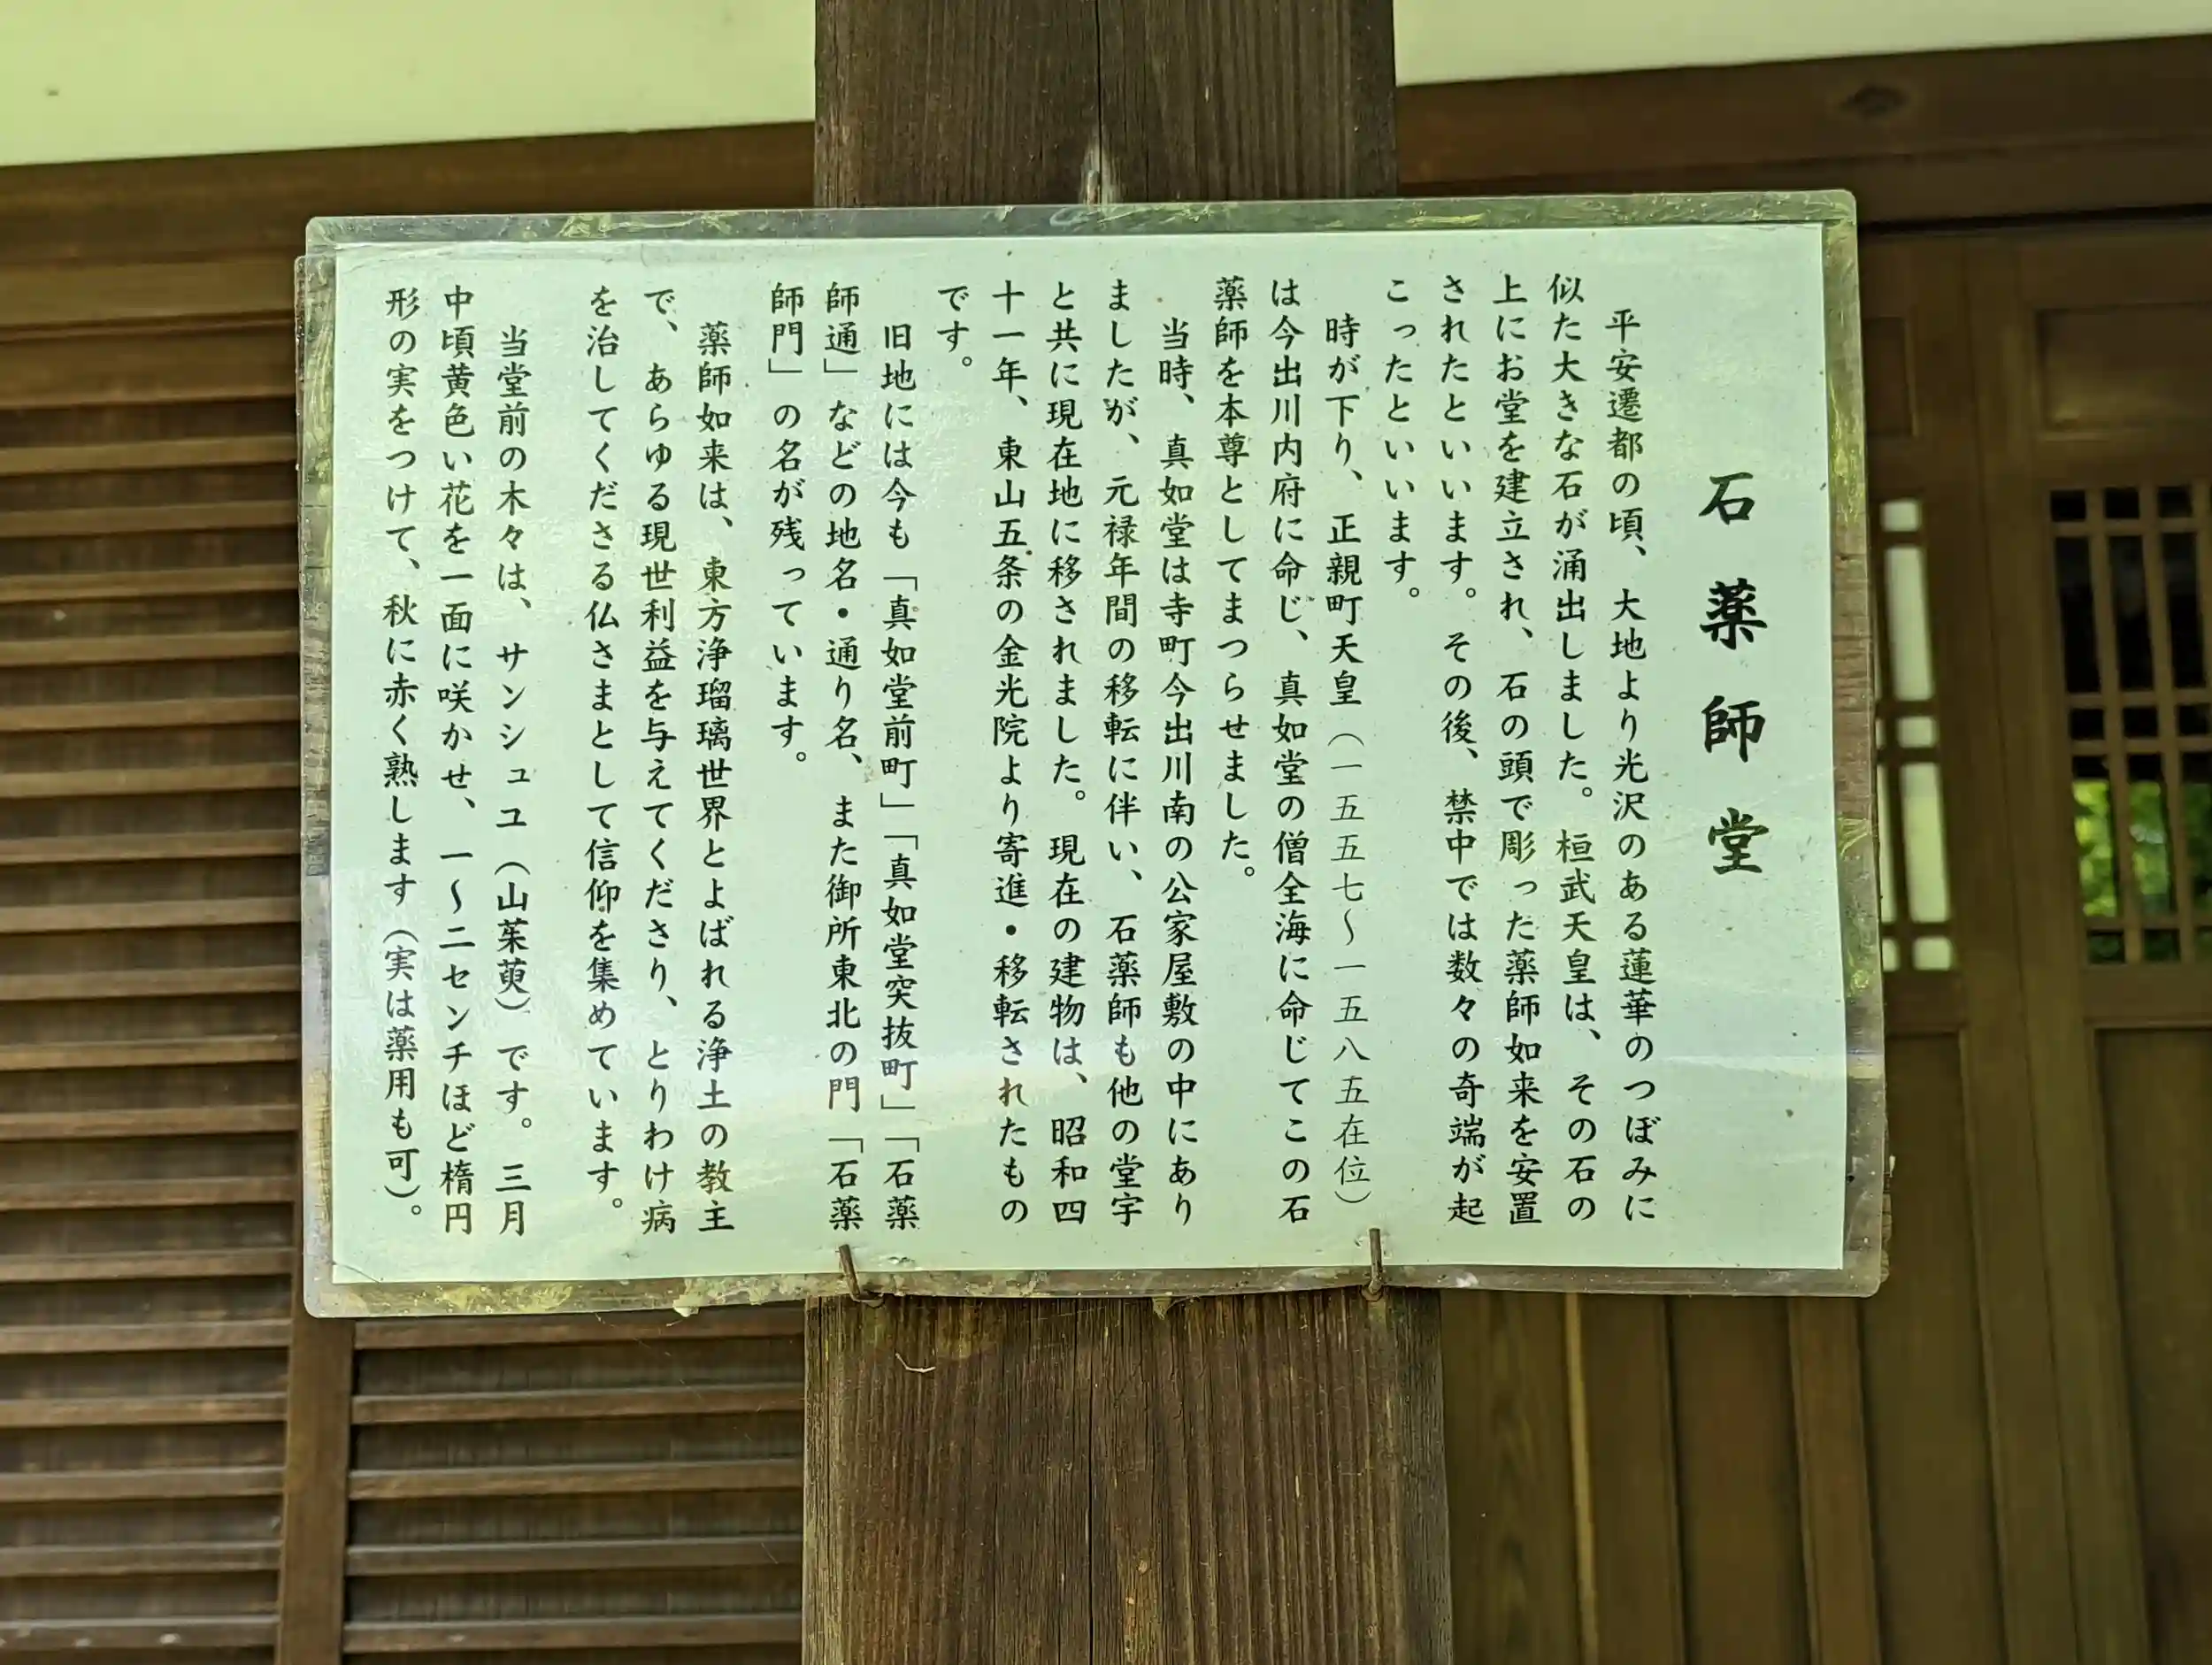 石薬師堂
平安遷都の頃、大地より光沢のある蓮華のつぼみに
似た大きな石が涌出しました。桓武天皇は、その石の
上にお堂を建立され、石の頭で彫った薬師如来を安置
されたといいます。その後、禁中では数々の奇端が起
こったといいます。
時が下り、正親町天皇（一五五七〜一五八五在位）
は今出川内府に命じ、真如堂の僧全海に命じてこの石
薬師を本尊としてまつらせました。
当時、真如堂は寺町今出川南の公家屋敷の中にあり
ましたが、元禄年間の移転に伴い、石薬師も他の堂宇
と共に現在地に移されました。現在の建物は、昭和四
十一年、東山五条の金光院より寄進・移転されたもの
です。
旧地には今も「真如堂前町」「真如堂突抜町」「石薬
師通」などの地名・通り名、また御所東北の門「石薬
師門」の名が残っています。
薬師如来は、東方浄瑠璃世界とよばれる浄土の教主
で、あらゆる現世利益を与えてくださり、とりわけ病
を治してくださる仏さまとして信仰を集めています。
当堂前の木々は、サンシュユ（山茱萸）です。三月
中頃黄色い花を一面に咲かせ、一〜二センチほど楕円
形の実をつけて、秋に赤く熟します（実は薬用も可）。